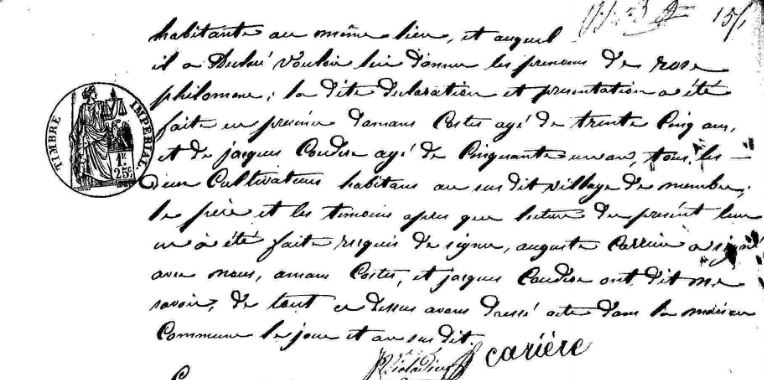 habitante au même lieu, et auquel
il a déclaré vouloir lui donner les prenoms de rose
philomene; la dite declaration et presentation a été
faite en presence d'amans Costes agé de trente Cinq ans,
et de jacques Coudise agé de Cinquante un an, tous les
deux Cultivateurs habitans au sus dit village de
le père et les temoins apres que lecture du présent leur
en à été faite requis de signer, auguste Carriere a signé
avec nous, amans Costes, et jacques Coudise ont dit ne
savoir, de tout ce dessus avons dressé acte dans la maison
Commune le jour et an sus dit.
carière
TIMBRE IMPERIAL
1F.
25C.